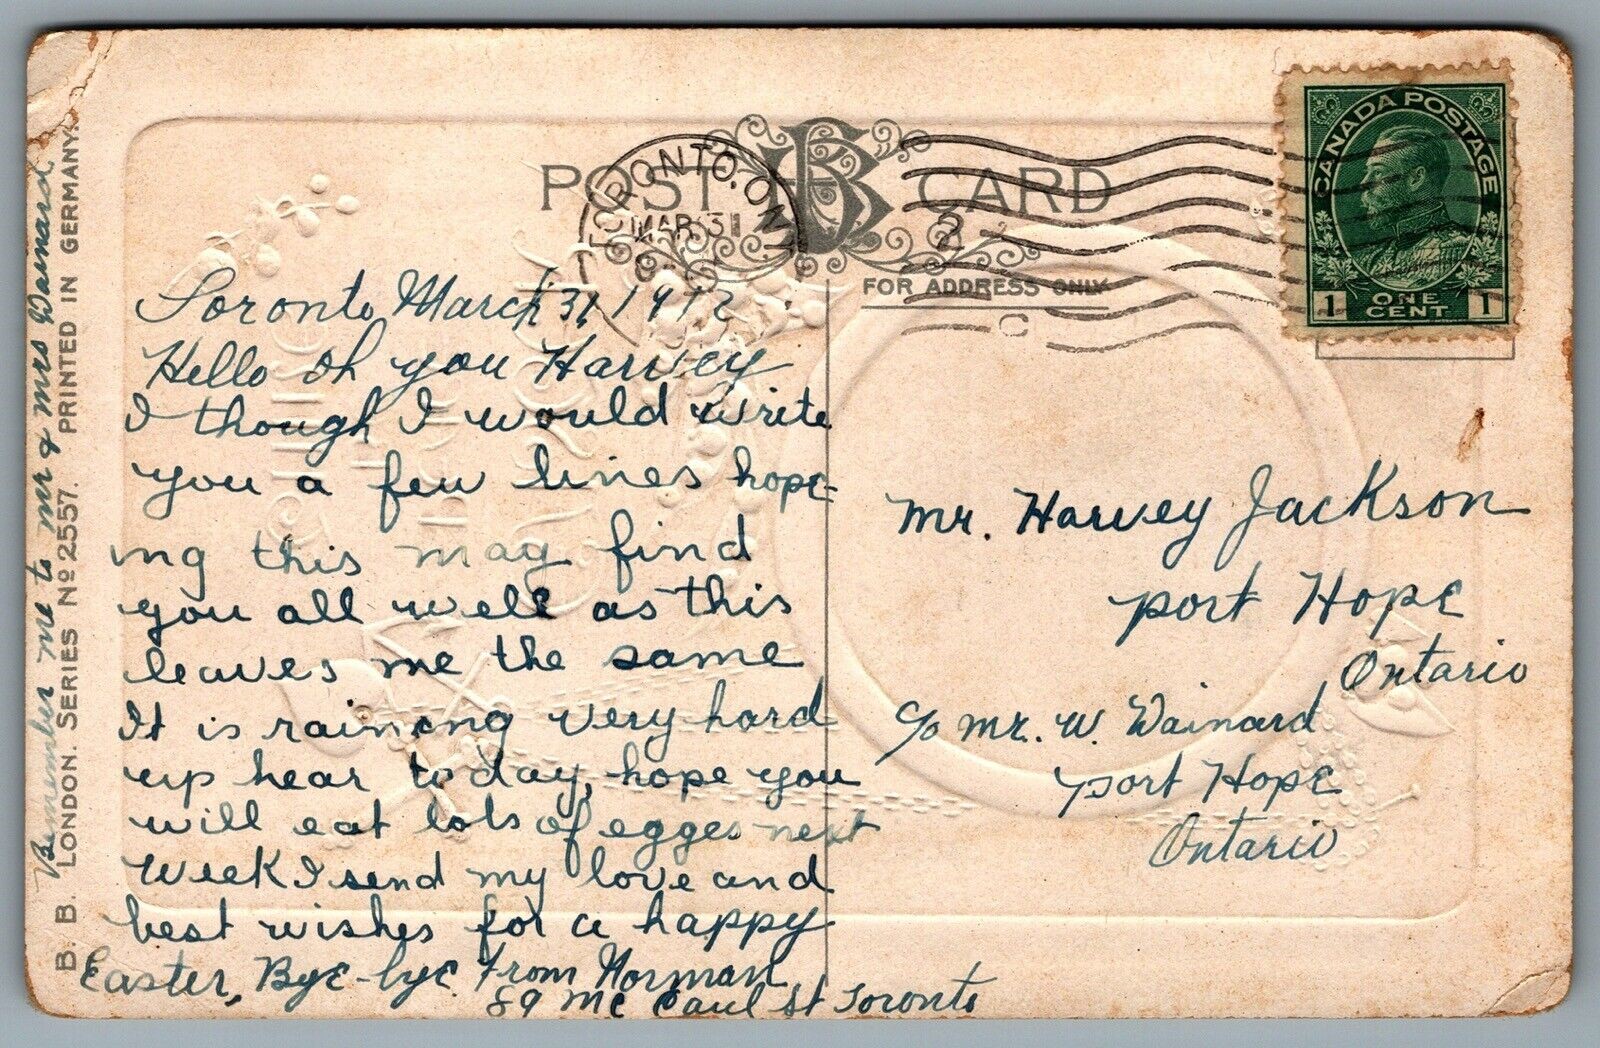 POST CARD
FOR ADDRESS ONLY
TORONTO, ONT.
MAR 31
2
C
CANADA POSTAGE
1 ONE CENT 1
Toronto March 31, 1912
Hello oh you Harvey
I though I would write
you a few lines hope-
ing this may find
you all well as this
leaves me the same
It is raining very hard
up hear to day, hope you
will eat lots of egges next
week I send my love and
best wishes for a happy
Easter, Bye-bye From Norman
89 Mc Caul St Toronto
Mr. Harvey Jackson
Port Hope
Ontario
c/o Mr. W. Wainard
Port Hope
Ontario
Remember me to Mr & Mrs Wainard
B. B. LONDON. SERIES No 2557. PRINTED IN GERMANY.